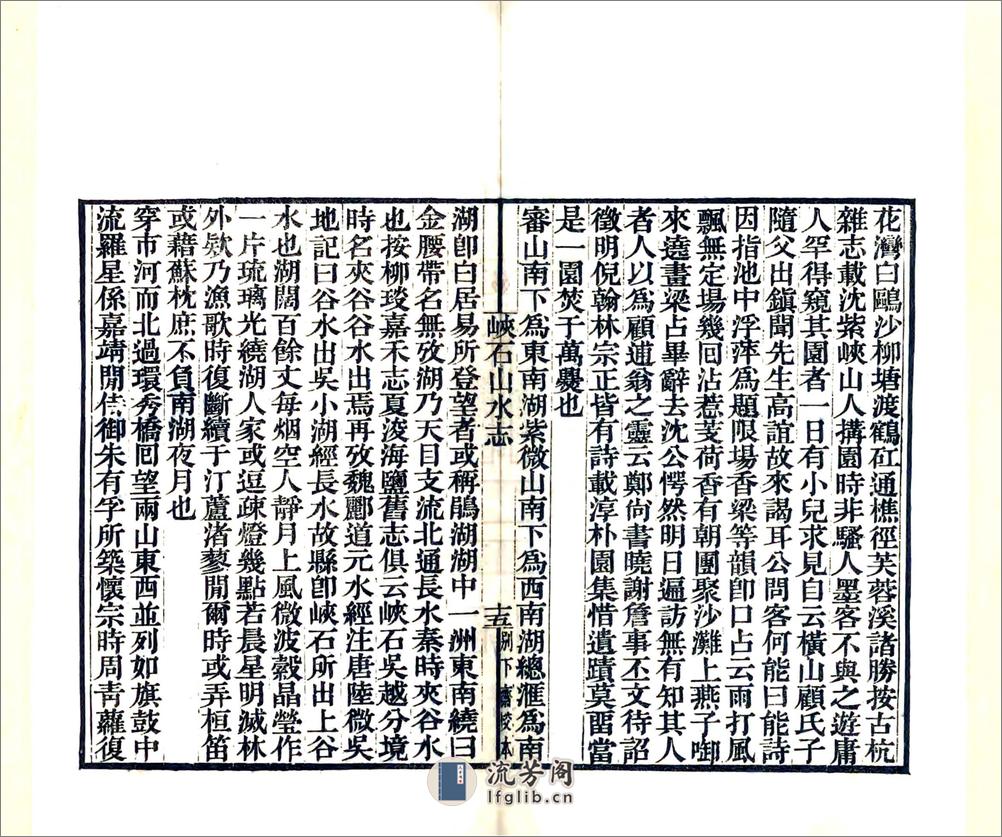 花灣白鷗沙柳塘渡鶴矼通樵徑芙蓉溪諸勝按古杭
雜志載沈紫峽山人搆園時非騷人墨客不與之遊庸
人罕得窺其園者一日有小兒求見自云橫山顧氏子
隨父出鎮聞先生高誼故來謁耳公問客何能曰能詩
因指池中浮萍爲題限場香梁等韻卽口占云雨打風
飄無定場幾回沾惹芰荷香有朝團聚沙灘上燕子啣
來遶畫梁占畢辭去沈公愕然明日遍訪無有知其人
者人以爲顧逋翁之靈云鄭尙書曉謝詹事丕文待詔
徵明倪翰林宗正皆有詩載淳朴園集惜遺蹟莫畱當
是一園焚于萬㸑也
審山南下爲東南湖紫微山南下爲西南湖總滙爲南
峽石山水志
十五
別下齋校本
湖卽白居易所登望者或稱鵑湖湖中一洲東南繞曰
金腰帶名無攷湖乃天目支流北通長水秦時夾谷水
也按柳琰嘉禾志夏浚海鹽舊志俱云峽石吳越分境
時名夾谷谷水出焉再攷魏酈道元水經注唐陸微吳
地記曰谷水出吳小湖經長水故縣卽峽石所出上谷
水也湖闊百餘丈每烟空人靜月上風微波縠晶瑩作
一片琉璃光繞湖人家或逗疎燈幾點若晨星明滅林
外欵乃漁歌時復斷續于汀蘆渚蓼閒爾時或弄桓笛
或藉蘇枕庶不負南湖夜月也
穿市河而北過環秀橋囘望兩山東西並列如旗鼓中
流羅星係嘉靖閒侍御朱有孚所築懷宗時周靑蘿復
流芳阁
lfglib.cn